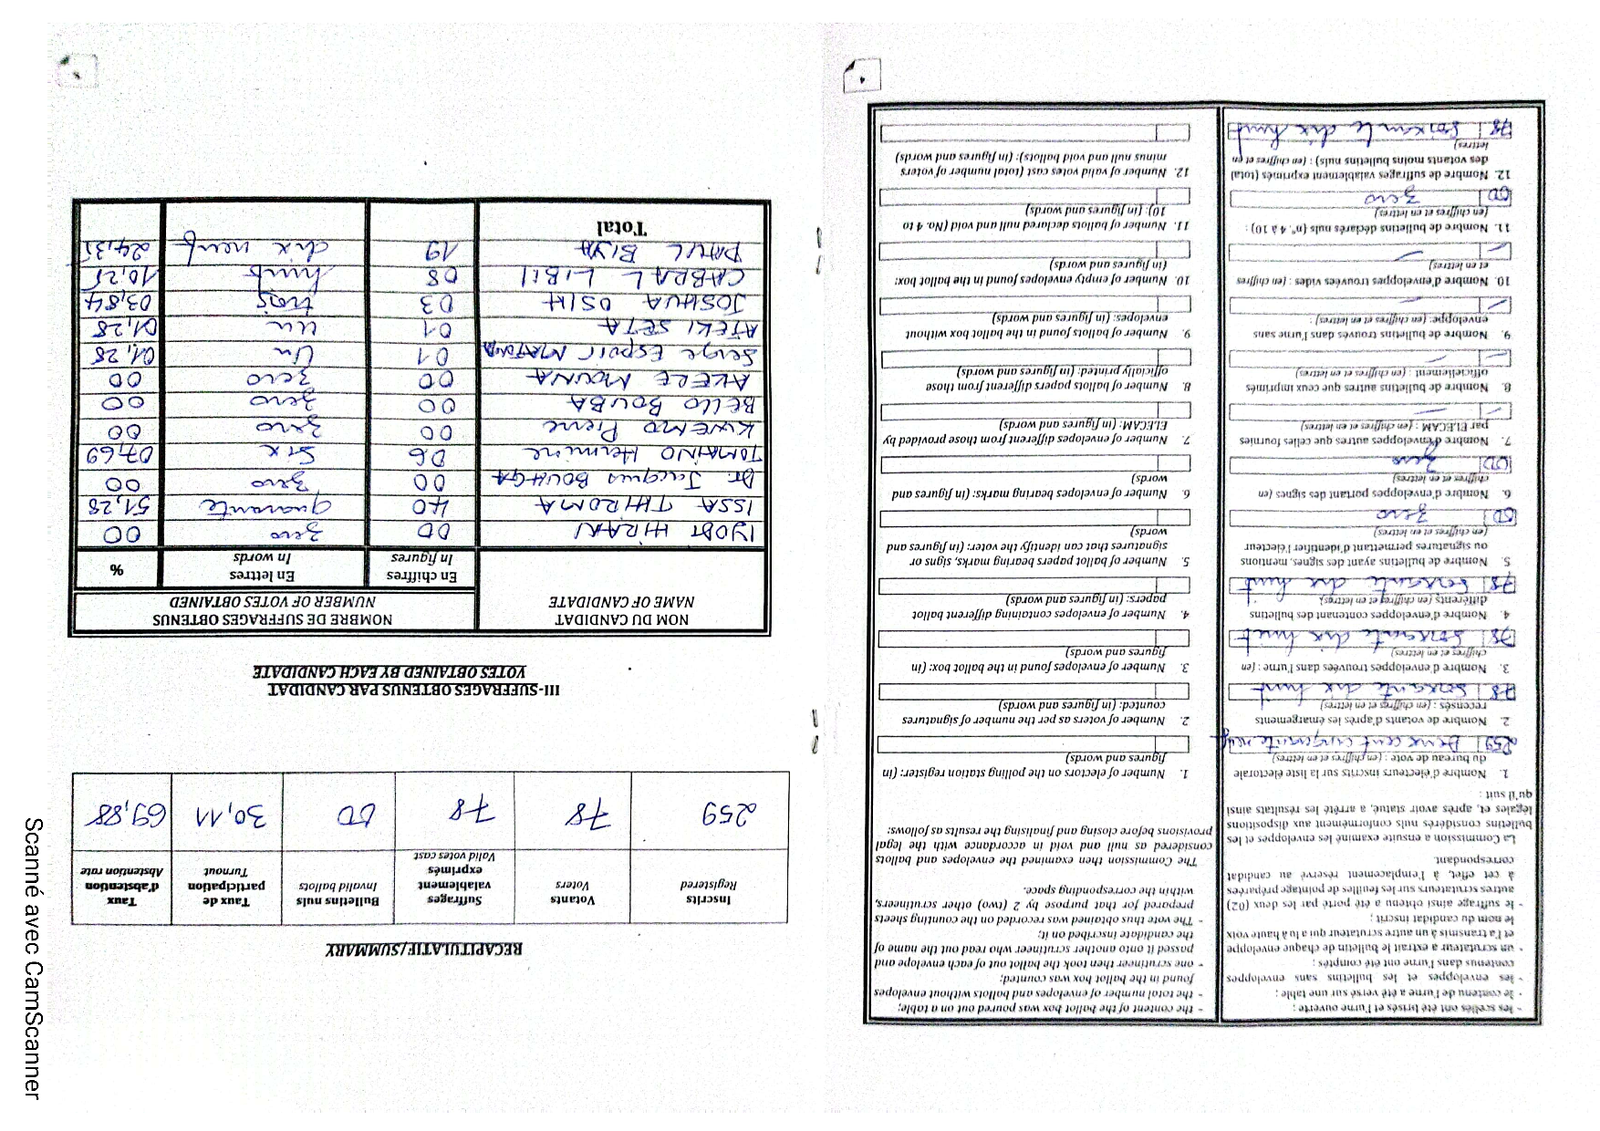 - les scellés ont été brisés et l'urne ouverte ;
- le contenu de l'urne a été versé sur une table ;
- les enveloppes et les bulletins sans enveloppes
contenus dans l'urne ont été comptés ;
- un scrutateur a extrait le bulletin de chaque enveloppe
et l'a transmis à un autre scrutateur qui a lu à haute voix
le nom du candidat inscrit ;
- le suffrage ainsi obtenu a été porté par les deux (02)
autres scrutateurs sur les feuilles de pointage préparées
à cet effet, à l'emplacement réservé au candidat
correspondant.
La Commission a ensuite examiné les enveloppes et les
bulletins considérés nuls conformément aux dispositions
légales et, après avoir statué, a arrêté les résultats ainsi
qu'il suit :
1. Nombre d'électeurs inscrits sur la liste électorale
du bureau de vote : (en chiffres et en lettres)
259 Deux cent cinquante neuf
2. Nombre de votants d'après les émargements
recensés : (en chiffres et en lettres)
78 soixante dix huit
3. Nombre d'enveloppes trouvées dans l'urne : (en
chiffres et en lettres)
78 soixante dix huit
4. Nombre d'enveloppes contenant des bulletins
différents (en chiffres et en lettres)
78 soixante dix huit
5. Nombre de bulletins ayant des signes, mentions
ou signatures permettant d'identifier l'électeur
(en chiffres et en lettres)
00 zero
6. Nombre d'enveloppes portant des signes (en
chiffres et en lettres)
00 zero
7. Nombre d'enveloppes autres que celles fournies
par ELECAM : (en chiffres et en lettres)
8. Nombre de bulletins autres que ceux imprimés
officiellement : (en chiffres et en lettres)
9. Nombre de bulletins trouvés dans l'urne sans
enveloppe: (en chiffres et en lettres) :
10. Nombre d'enveloppes trouvées vides : (en chiffres
et en lettres)
11. Nombre de bulletins déclarés nuls (n°. 4 à 10) :
(en chiffres et en lettres)
00 zero
12. Nombre de suffrages valablement exprimés (total
des votants moins bulletins nuls) : (en chiffres et en
lettres)
78 soixante dix huit
- the content of the ballot box was poured out on a table;
- the total number of envelopes and ballots without envelopes
found in the ballot box was counted;
- one scrutineer then took the ballot out of each envelope and
passed it onto another scrutineer who read out the name of
the candidate inscribed on it;
- The vote thus obtained was recorded on the counting sheets
prepared for that purpose by 2 (two) other scrutineers,
within the corresponding space.
The Commission then examined the envelopes and ballots
considered as null and void in accordance with the legal
provisions before closing and finalising the results as follows:
1. Number of electors on the polling station register: (in
figures and words)
2. Number of voters as per the number of signatures
counted: (in figures and words)
3. Number of envelopes found in the ballot box: (in
figures and words)
4. Number of envelopes containing different ballot
papers: (in figures and words)
5. Number of ballot papers bearing marks, signs or
signatures that can identify the voter: (in figures and
words)
6. Number of envelopes bearing marks: (in figures and
words)
7. Number of envelopes different from those provided by
ELECAM: (in figures and words)
8. Number of ballots papers different from those
officially printed: (in figures and words)
9. Number of ballots found in the ballot box without
envelopes: (in figures and words)
10. Number of empty envelopes found in the ballot box:
(in figures and words)
11. Number of ballots declared null and void (No. 4 to
10): (in figures and words)
12. Number of valid votes cast (total number of voters
minus null and void ballots): (in figures and words)
RECAPITULATIF/SUMMARY
Inscrits Registered
Votants Voters
Suffrages valablement exprimés Valid votes cast
Bulletins nuls Invalid ballots
Taux de participation Turnout
Taux d'abstention Abstention rate
259 78 78 00 30,11 69,88
III-SUFFRAGES OBTENUS PAR CANDIDAT
VOTES OBTAINED BY EACH CANDIDATE
NOM DU CANDIDAT
NAME OF CANDIDATE
NOMBRE DE SUFFRAGES OBTENUS
NUMBER OF VOTES OBTAINED
En chiffres In figures
En lettres In words
%
IYODI HIRAM 00 zero 00
ISSA TCHIROMA 40 quarante 51,28
Dr. Jacques BOUHGA 00 zero 00
TOMAINO Hermine 06 six 07,69
KWEMO Pierre 00 zero 00
BELLO BOUBA 00 zero 00
AKERE MOUNA 00 zero 00
Serge Espoir MATOMBA 01 Un 01,28
ATEKI SETA 01 un 01,28
JOSHUA OSIH 03 trois 03,84
CABRAL LIBII 08 huit 10,25
PAUL BIYA 19 dix neuf 24,35
Total
Scanné avec CamScanner